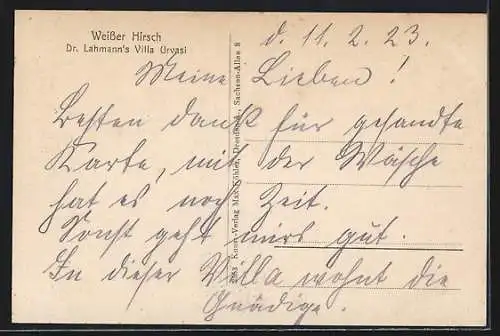 Weißer Hirsch
Dr. Lahmann's Villa Urvasi
d. 11. 2. 23.
Meine Lieben!
Besten dank für gesandte
Karte, mit der Wäsche
hat es noch Zeit.
Sonst geht mirs gut.
In dieser Villa wohnt die
Gnädige.
Kunst-Verlag Max Köhler, Dresden, Sachsen-Allee 8